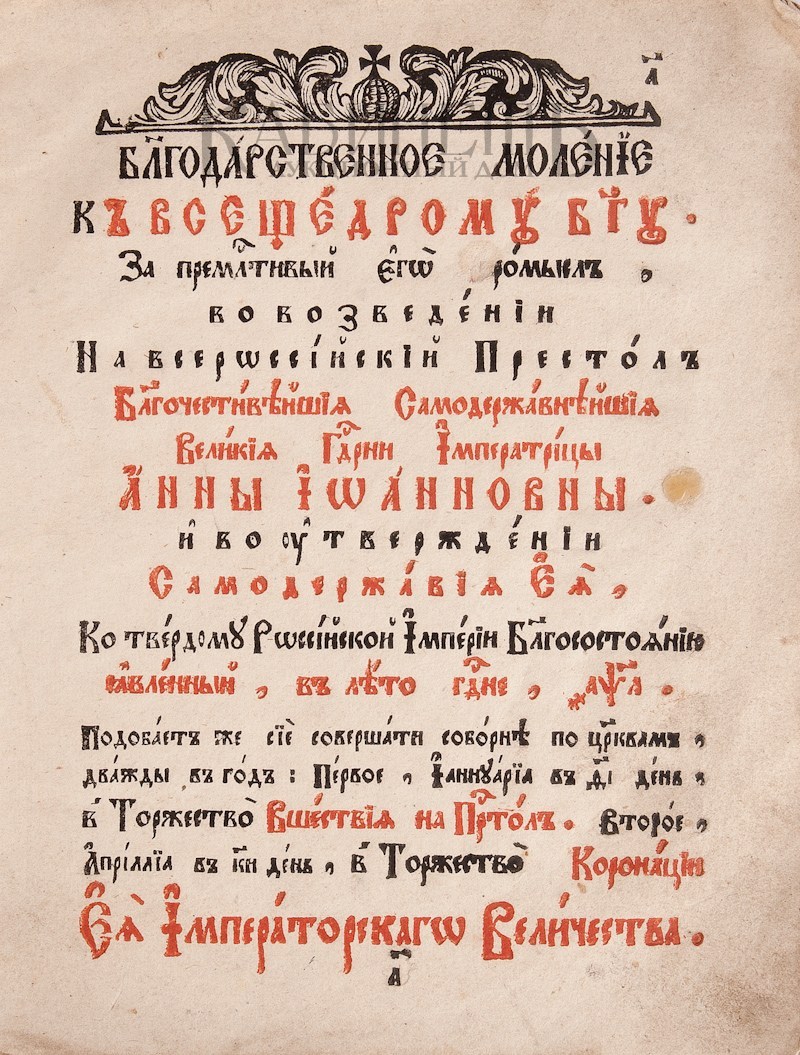 а҃
БЛ҃ГОДА́РСТВЕННОЕ МОЛЕ́НЇЕ
КЪ ВСЕЩЕ́ДРОМУ БГ҃У.
За премлⷭ҇тивый є҆гѡ̀ ро́мыслъ ,
во возведе́нїи
На всерѡссі́йскїй Престо́лъ
Бл҃гочести́вѣйшїѧ Самодержа́внѣйшїѧ
Вели́кїѧ Гдⷭ҇рни І҆мператрі́цы
А҆́ННЫ І҆ѠА́ННОВНЫ.
и҆ во ᲂу҆твержде́нїи
Самодержа́вїѧ Є҆ѧ̀ ,
Ко тве́рдому Рѡссі́йской І҆мпе́рїи Бл҃госостоѧ́нїю
ꙗ҆вле́нный , въ лѣ́то гдⷭ҇не , ҂аѱ҃л .
Подоба́етъ же сїѐ соверша́ти собо́рнѣ по цр҃квамъ ,
два́жды въ го́дъ : Пе́рвое , І҆аннꙋа́рїа въ д҃і де́нь ,
в̾ Торжество̀ Вше́ствїѧ на Прⷭ҇то́лъ. второ́е ,
А҆прі́лїа въ к҃и де́нь , в̾ Торжество̀ Корона́цїи
Є҆ѧ̀ І҆мпера́торскагѡ Вели́чества.
а҃